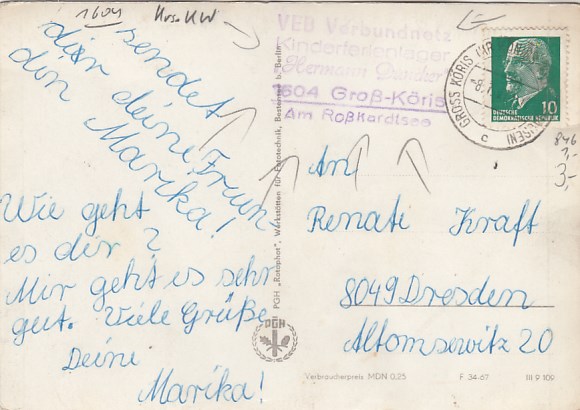 1604 Kr. KW
sendet
dir deine Freun
din Marika!
Wie geht
es dir?
Mir geht es sehr
gut. Viele Grüße
Deine
Marika!
PGH „Rotophot“, Werkstätten für Fototechnik, Bestensee b. Berlin
PGH
VEB Verbundnetz
Kinderferienlager
Hermann Duncker
1604 Groß-Köris
Am Roßkardtsee
GROSS KÖRIS
c
10
DEUTSCHE
DEMOKRATISCHE REPUBLIK
846
1,-
3,-
An
Renate Kraft
8049 Dresden
Altomsewitz 20
Verbraucherpreis MDN 0,25 F. 34-67 III 9 109